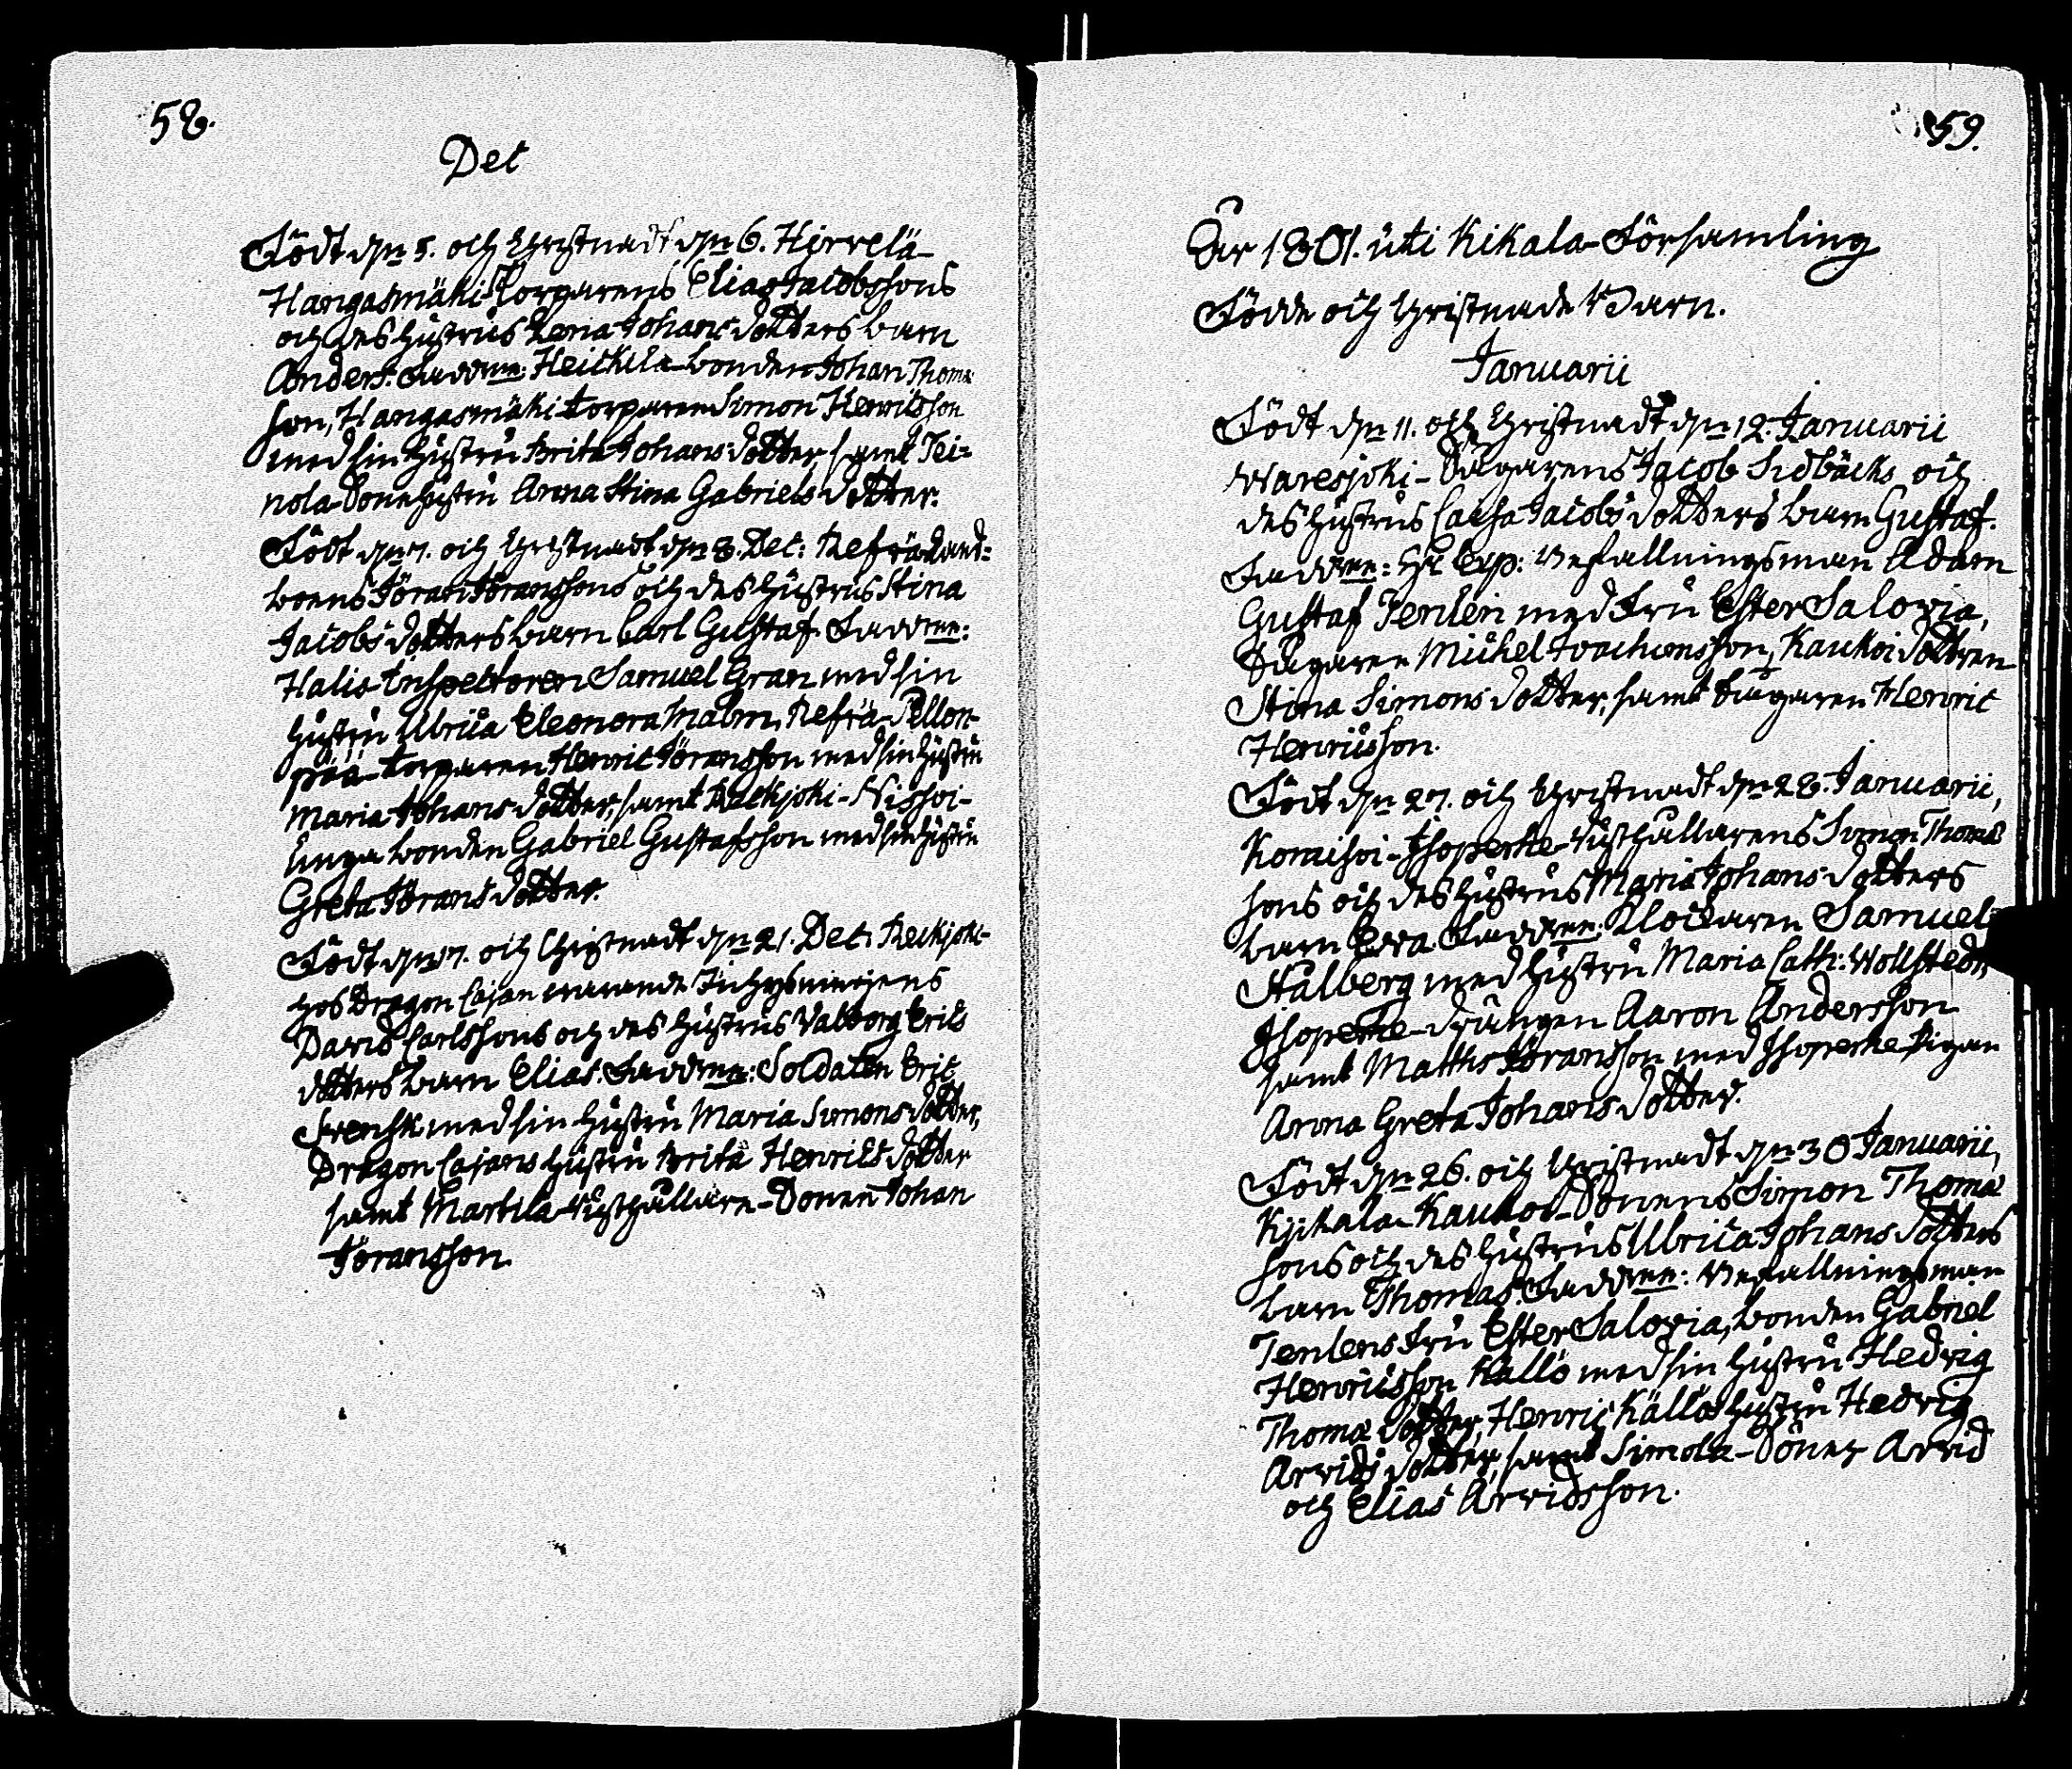 58.
Dec
Född dn 5. och Christnadt dn 6. Hirrelä-
Hangasmäki Torparens Elias Jacobssons
och des Hustrus Lena Johans dotters barn
Anders. Faddrar: Heickilä bonden Johan Thomæ
son, Hangasmäki torparen Simon Henricsson
med sin Hustru Brita Johans dotter, samt Tei-
nola Sonehustru Anna Stina Gabriels dotter.
Född dn 7. och Christnadt dn 8. Dec: Refrä Land-
boens Jöran Jöranssons och des Hustrus Stina
Jacobs dotters barn Carl Gustaf. Faddrar:
Halis Inspectoren Samuel Gran med sin
Hustru Ulrica Eleonora Malm, Refrä Pellon-
pää torparen Henric Jöransson med sin Hustru
Maria Johans dotter, samt Reckjoki-Nissoi-
unga bonden Gabriel Gustafsson med sin Hustru
Greta Jörans dotter.
Född dn 17. och Christnadt dn 21. Dec. Reckjoki-
hos Dragon Cajan warande Inhysemannens
David Carlssons och des Hustrus Valborg Erics
dotters barn Elias. Faddrar: Soldaten Eric
Svensk med sin Hustru Maria Simons dotter,
Dragon Cajans Hustru Brita Henrics dotter
samt Martila Rusthållare-Sonen Johan
Jöransson.
59.
År 1801. uti Kikala Församling
Födde och Christnade Barn.
Januarii
Född dn 11. och Christnadt dn 12. Januarii
Waresjoki-Sågarens Jacob Sidbäcks och
des Hustrus Caisa Jacobs dotters barn Gustaf.
Faddrar: Hr Exp: Befallningsman Adam
Gustaf Tenlen med Fru Ester Salovia,
Sågaren Michel Joachimsson, Kaukoi dottren
Stina Simons dotter, samt Sågaren Henric
Henricsson.
Född dn 27. och Christnadt dn 28. Januarii,
Komisoi-Isoperhe-Rusthållarens Simon Thomæ
sons och des Hustrus Maria Johans dotters
barn Eva. Faddrar: Klockaren Samuel
Stålberg med Hustru Maria Cath: Wollstedt,
Isoperhe-drängen Aaron Andersson
samt Matths Jöransson med Isoperhe Pigan
Anna Greta Johans dotter.
Född dn 26. och Christnadt dn 30 Januarii,
Kijkala-Kaukoi-Sonens Simon Thomæ
sons och des Hustrus Ulrica Johans dotters
barn Thomas. Faddrar: Befallningsman
Tenlens Fru Ester Salovia, bonden Gabriel
Henricsson Kallo med sin Hustru Hedvig
Thomæ dotter, Henric Källos Hustru Hedvig
Arvids dotter, samt Simola-Söner Arvid
och Elias Arvidsson.